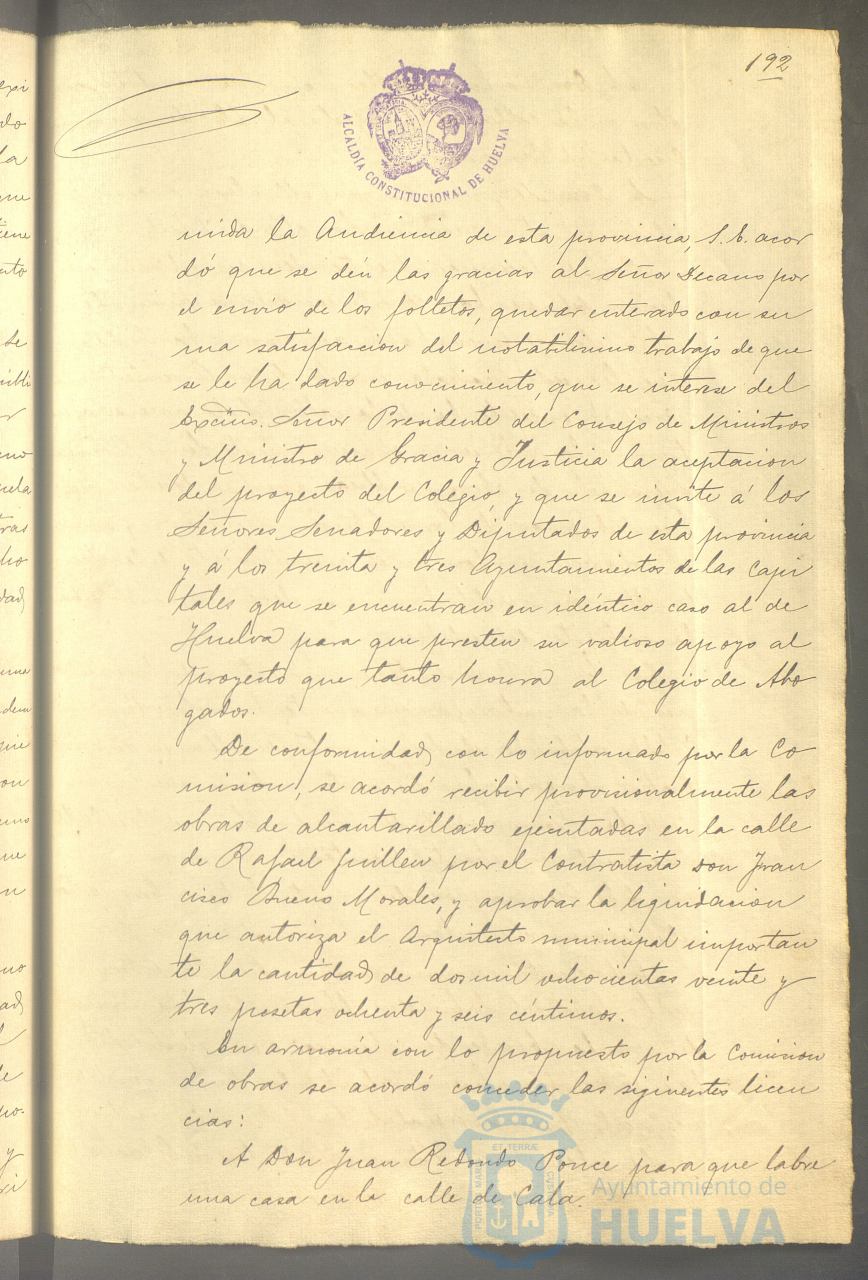 192
ALCALDÍA CONSTITUCIONAL DE HUELVA
nida la Audiencia de esta provincia, S. E. acor
dó que se dén las gracias al Señor Decano por
el envío de los folletos, quedar enterado con su
ma satisfaccion del notabilisimo trabajo de que
se le ha dado conocimiento, que se interese del
Excmo. Señor Presidente del Consejo de Ministros
y Ministro de Gracia y Justicia la aceptacion
del proyecto del Colegio, y que se invite á los
Señores Senadores y Diputados de esta provincia
y á los treinta y tres Ayuntamientos de las Capi
tales que se encuentran en idéntico caso al de
Huelva para que presten su valioso apoyo al
proyecto que tanto honra al Colegio de Abo
gados.
De conformidad con lo informado por la Co
mision, se acordó recibir provisionalmente las
obras de alcantarillado ejecutadas en la calle
de Rafael Guillen por el Contratista Don Fran
cisco Bueno Morales, y aprobar la liquidacion
que autoriza el Arquitecto municipal importan
te la cantidad de dos mil ochocientas veinte y
tres pesetas ochenta y seis céntimos.
En armonía con lo propuesto por la Comision
de obras se acordó conceder las siguientes licen
cias:
A Don Juan Redondo Ponce para que labre
una casa en la calle de Cala.
Ayuntamiento de
HUELVA